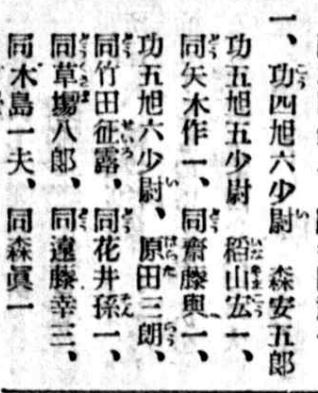 一、功四旭六少尉　森安五郎
功五旭五少尉　稻山宏一、
同矢木作一、同齋藤與一、
功五旭六少尉、原田三朗、
同竹田征露、同花井孫一、
同草場八郎、同遠藤幸三、
同木島一夫、同森眞一